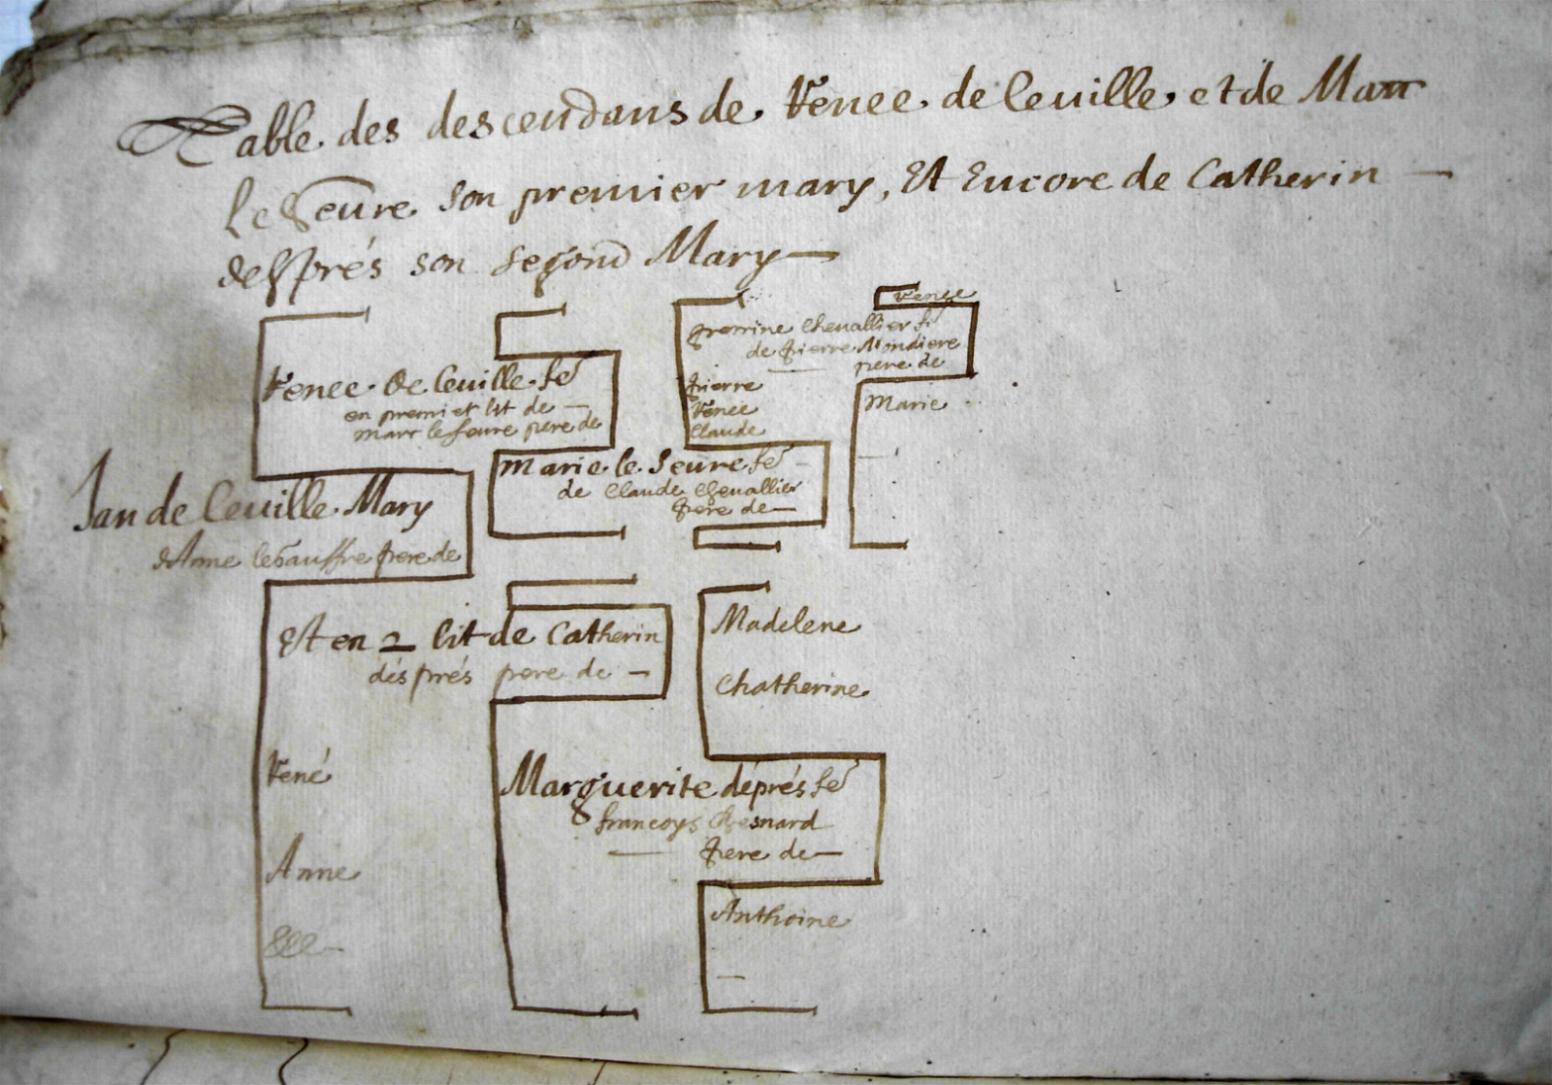 Table des descendans de Renee de Leuille et de Marr
le Feure son premier mary, Et Encore de Catherin
després son Segond Mary
Renee
Perrine Chevallier fe
de Pierre Mondiere
pere de
Marie
Pierre
Renee
Claude
Renee de Leuille fe
en premier lit de
Marr le feure pere de
Marie le feure fe
de Claude Chevallier
Pere de
Jan de Leuille Mary
d'Anne pere de
Et en 2 lit de Catherin
désprés pere de
Madelene
Chatherine
René
Marguerite déprés fe
francoys Chesnard
Pere de
Anne
Anthoine